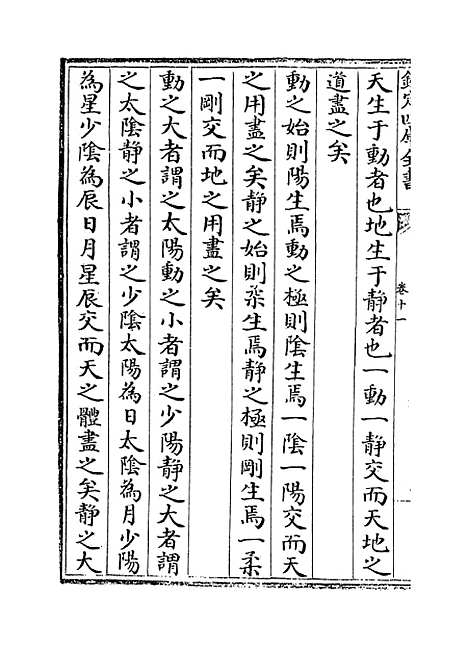 欽定四庫全書
卷十一
天生于動者也地生于靜者也一動一靜交而天地之
道盡之矣
動之始則陽生焉動之極則陰生焉一陰一陽交而天
之用盡之矣靜之始則柔生焉靜之極則剛生焉一柔
一剛交而地之用盡之矣
動之大者謂之太陽動之小者謂之少陽靜之大者謂
之太陰靜之小者謂之少陰太陽為日太陰為月少陽
為星少陰為辰日月星辰交而天之體盡之矣靜之大